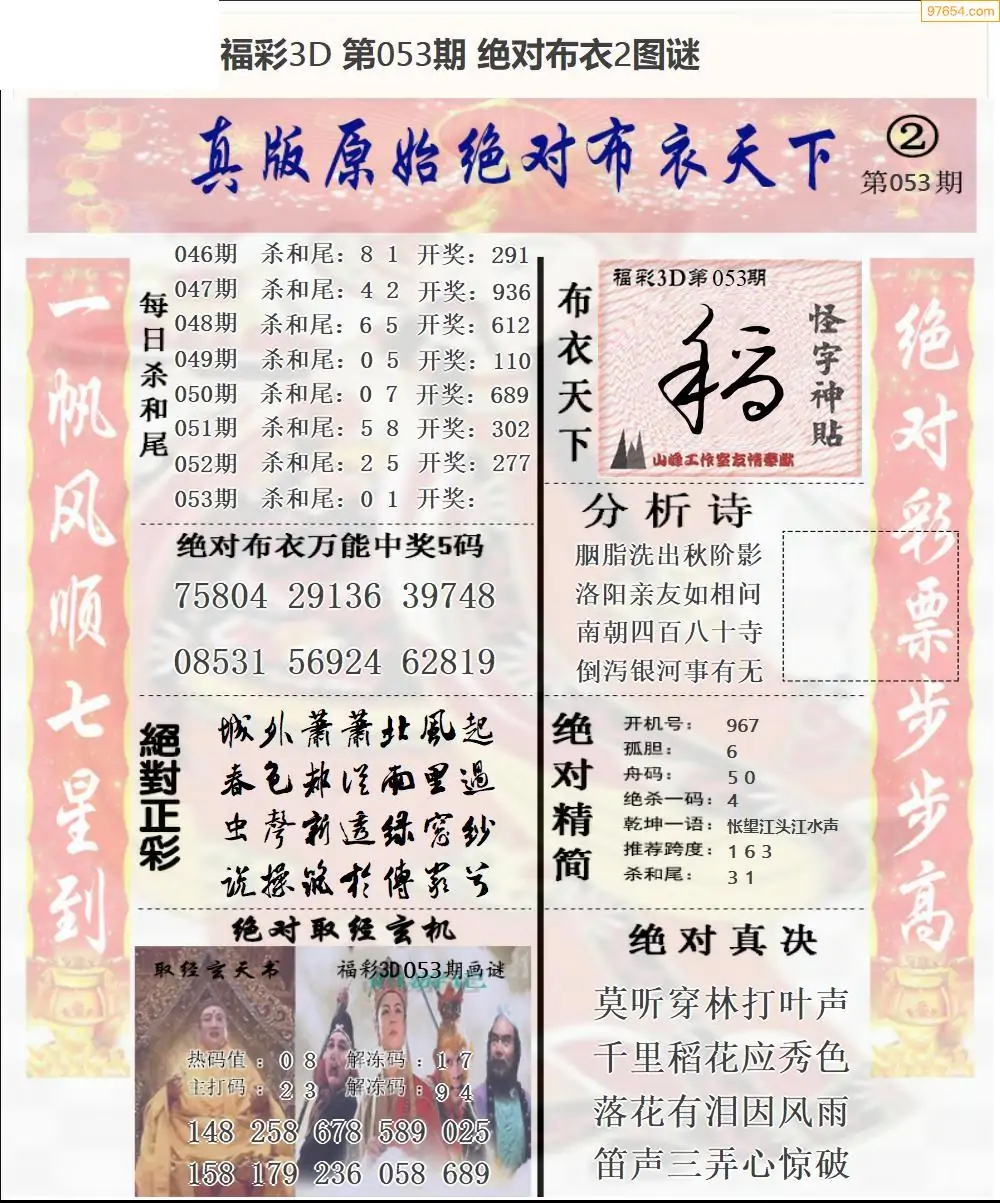 97654.com
福彩3D 第053期 绝对布衣2图谜
真版原始绝对布衣天下
②
第053期
一帆风顺七星到
每日杀和尾
046期 杀和尾：8 1 开奖：291
047期 杀和尾：4 2 开奖：936
048期 杀和尾：6 5 开奖：612
049期 杀和尾：0 5 开奖：110
050期 杀和尾：0 7 开奖：689
051期 杀和尾：5 8 开奖：302
052期 杀和尾：2 5 开奖：277
053期 杀和尾：0 1 开奖：
绝对布衣万能中奖5码
75804 29136 39748
08531 56924 62819
絕對正彩
城外萧萧北風起
春色都從雨里過
虫聲新透绿窓纱
绝对取经玄机
取经玄天书
福彩3D053期画谜
热码值：0 8 解冻码：1 7
主打码：2 3 解冻码：9 4
148 258 678 589 025
158 179 236 058 689
布衣天下
福彩3D第053期
稻
怪字神貼
山峰工作室友情奉献
分析诗
胭脂洗出秋阶影
洛阳亲友如相问
南朝四百八十寺
倒泻银河事有无
绝对精简
开机号：967
孤胆：6
舟码：5 0
绝杀一码：4
乾坤一语：怅望江头江水声
推荐跨度：1 6 3
杀和尾：3 1
绝对真决
莫听穿林打叶声
千里稻花应秀色
落花有泪因风雨
笛声三弄心惊破
绝对彩票步步高